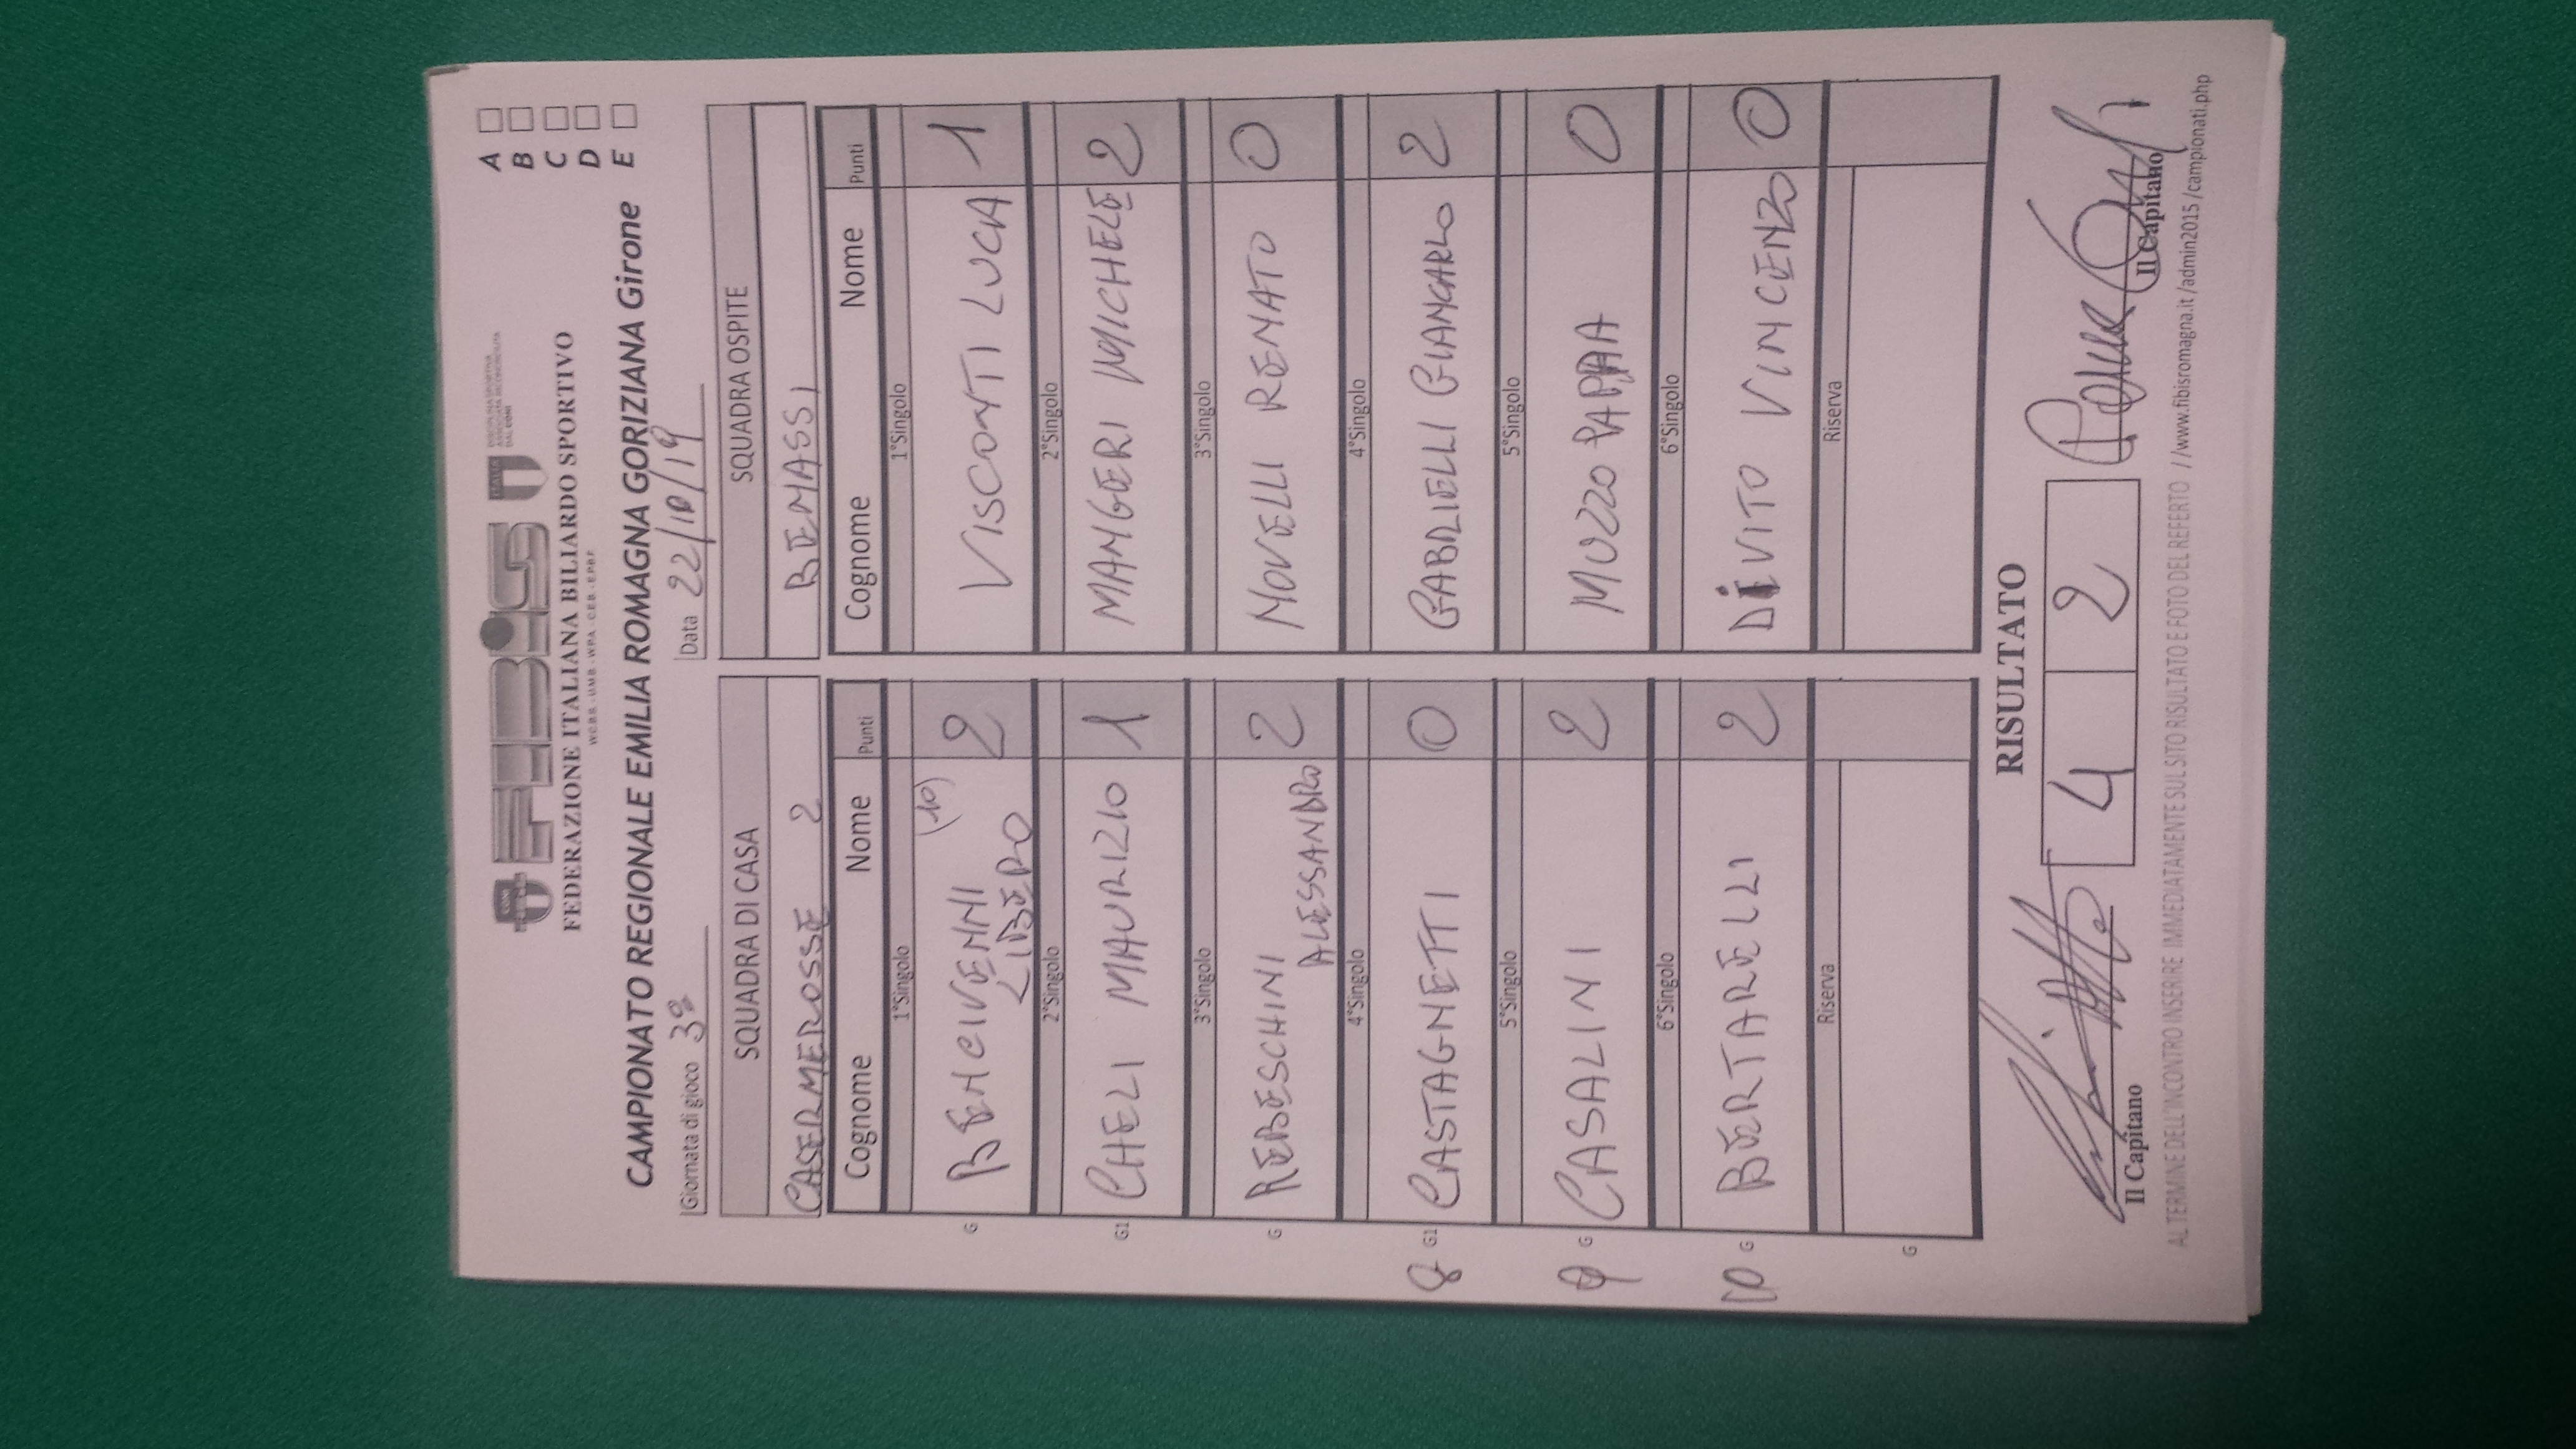 FIBiS
CONI
ITALIA
DISCIPLINA SPORTIVA
ASSOCIATA RICONOSCIUTA
DAL CONI
FEDERAZIONE ITALIANA BILIARDO SPORTIVO
W.C.B.S. - U.M.B. - W.P.A. - C.E.B. - E.P.B.F.
A
B
C
D
CAMPIONATO REGIONALE EMILIA ROMAGNA GORIZIANA Girone E
Giornata di gioco 3ª Data 22/10/19
SQUADRA DI CASA SQUADRA OSPITE
CASERMEROSSE 2 BENASSI
Cognome Nome Punti Cognome Nome Punti
1°Singolo 1°Singolo
G BENCIVENNI (10) 2 VISCONTI LUCA 1
LIBERO
2°Singolo 2°Singolo
G1 CHELI MAURIZIO 1 MANGERI MICHELE 2
3°Singolo 3°Singolo
G REBESCHINI 2 NOVELLI RENATO 0
ALESSANDRO
4°Singolo 4°Singolo
8 G1 CASTAGNETTI 0 GABRIELLI GIANCARLO 2
5°Singolo 5°Singolo
9 G CASALINI 2 MUZZO PAPPA 0
6°Singolo 6°Singolo
10 G BERTARELLI 2 DIVITO VINCENZO 0
Riserva Riserva
G
RISULTATO
4 2
Il Capitano Il Capitano
AL TERMINE DELL'INCONTRO INSERIRE IMMEDIATAMENTE SUL SITO RISULTATO E FOTO DEL REFERTO //www.fibisromagna.it/admin2015/campionati.php